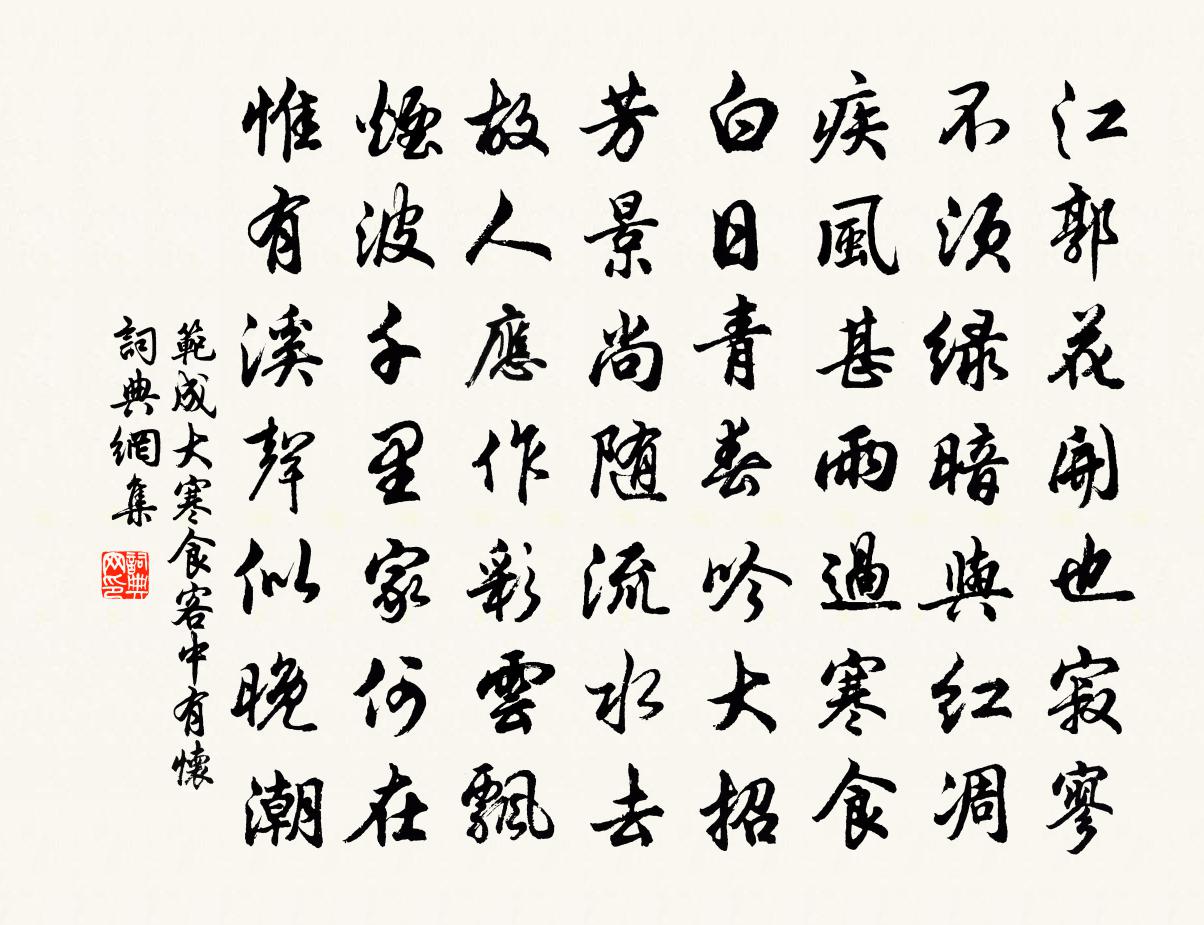 江郭花開也寂寥
不須緑暗與紅凋
疾風甚雨過寒食
白日青春吟大招
芳景尚随流水去
故人應作彩雲飄
煙波千里家何在
惟有溪聲似晚潮
範成大寒食客中有懷
詞典網集
詞典網印